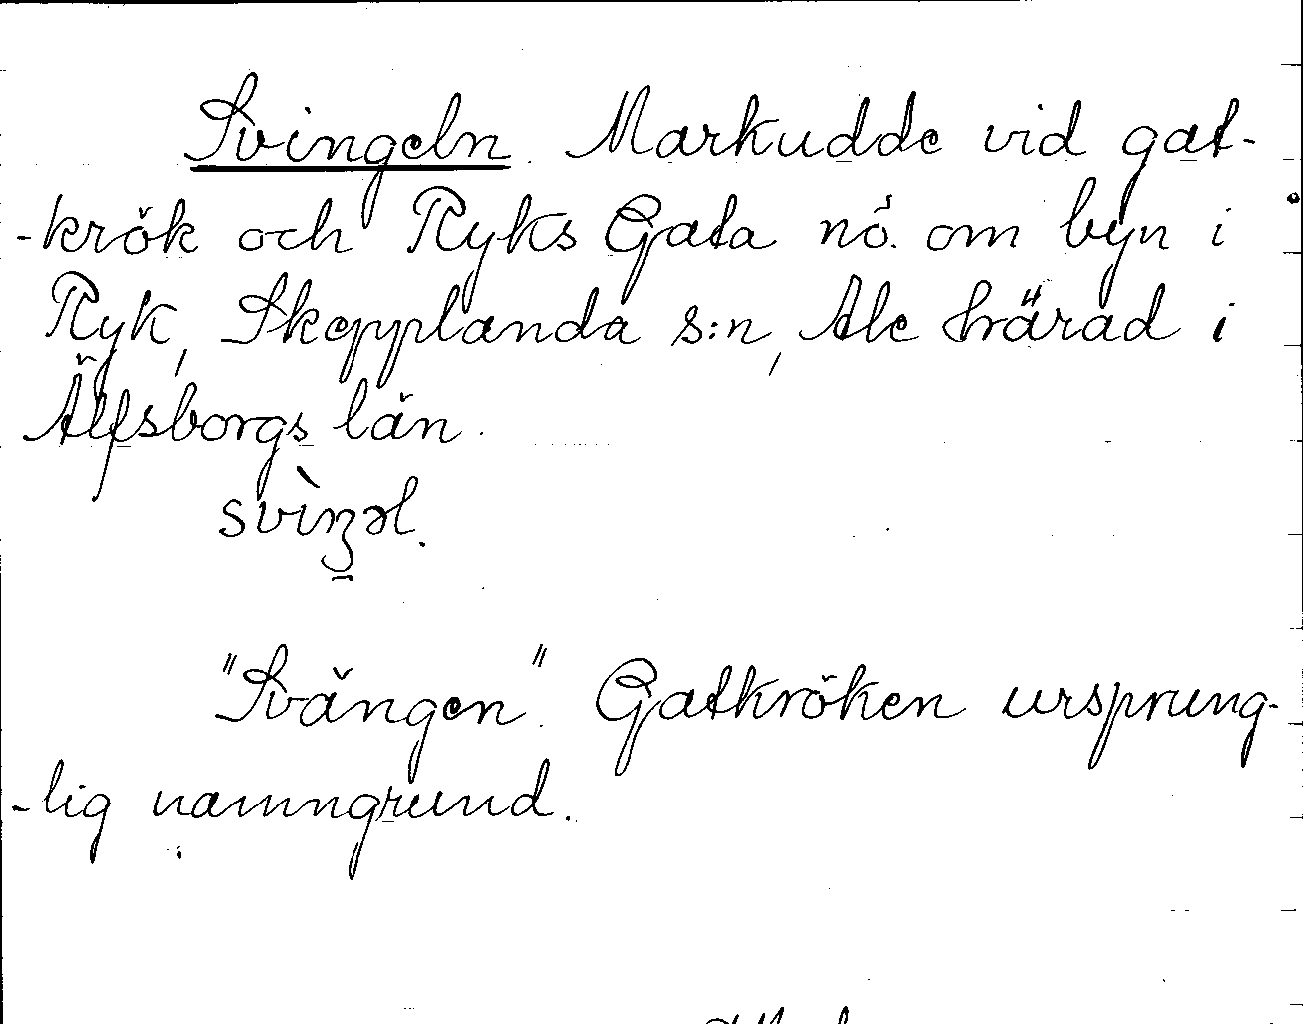 Svingeln. Markudde vid gat-
-krök och Ryks Gata nö. om byn i
Ryk, Skepplanda s:n, Ale härad i
Älfsborgs län.
svìŋəl.
"Svängen". Gatkröken ursprung-
-lig namngrund.